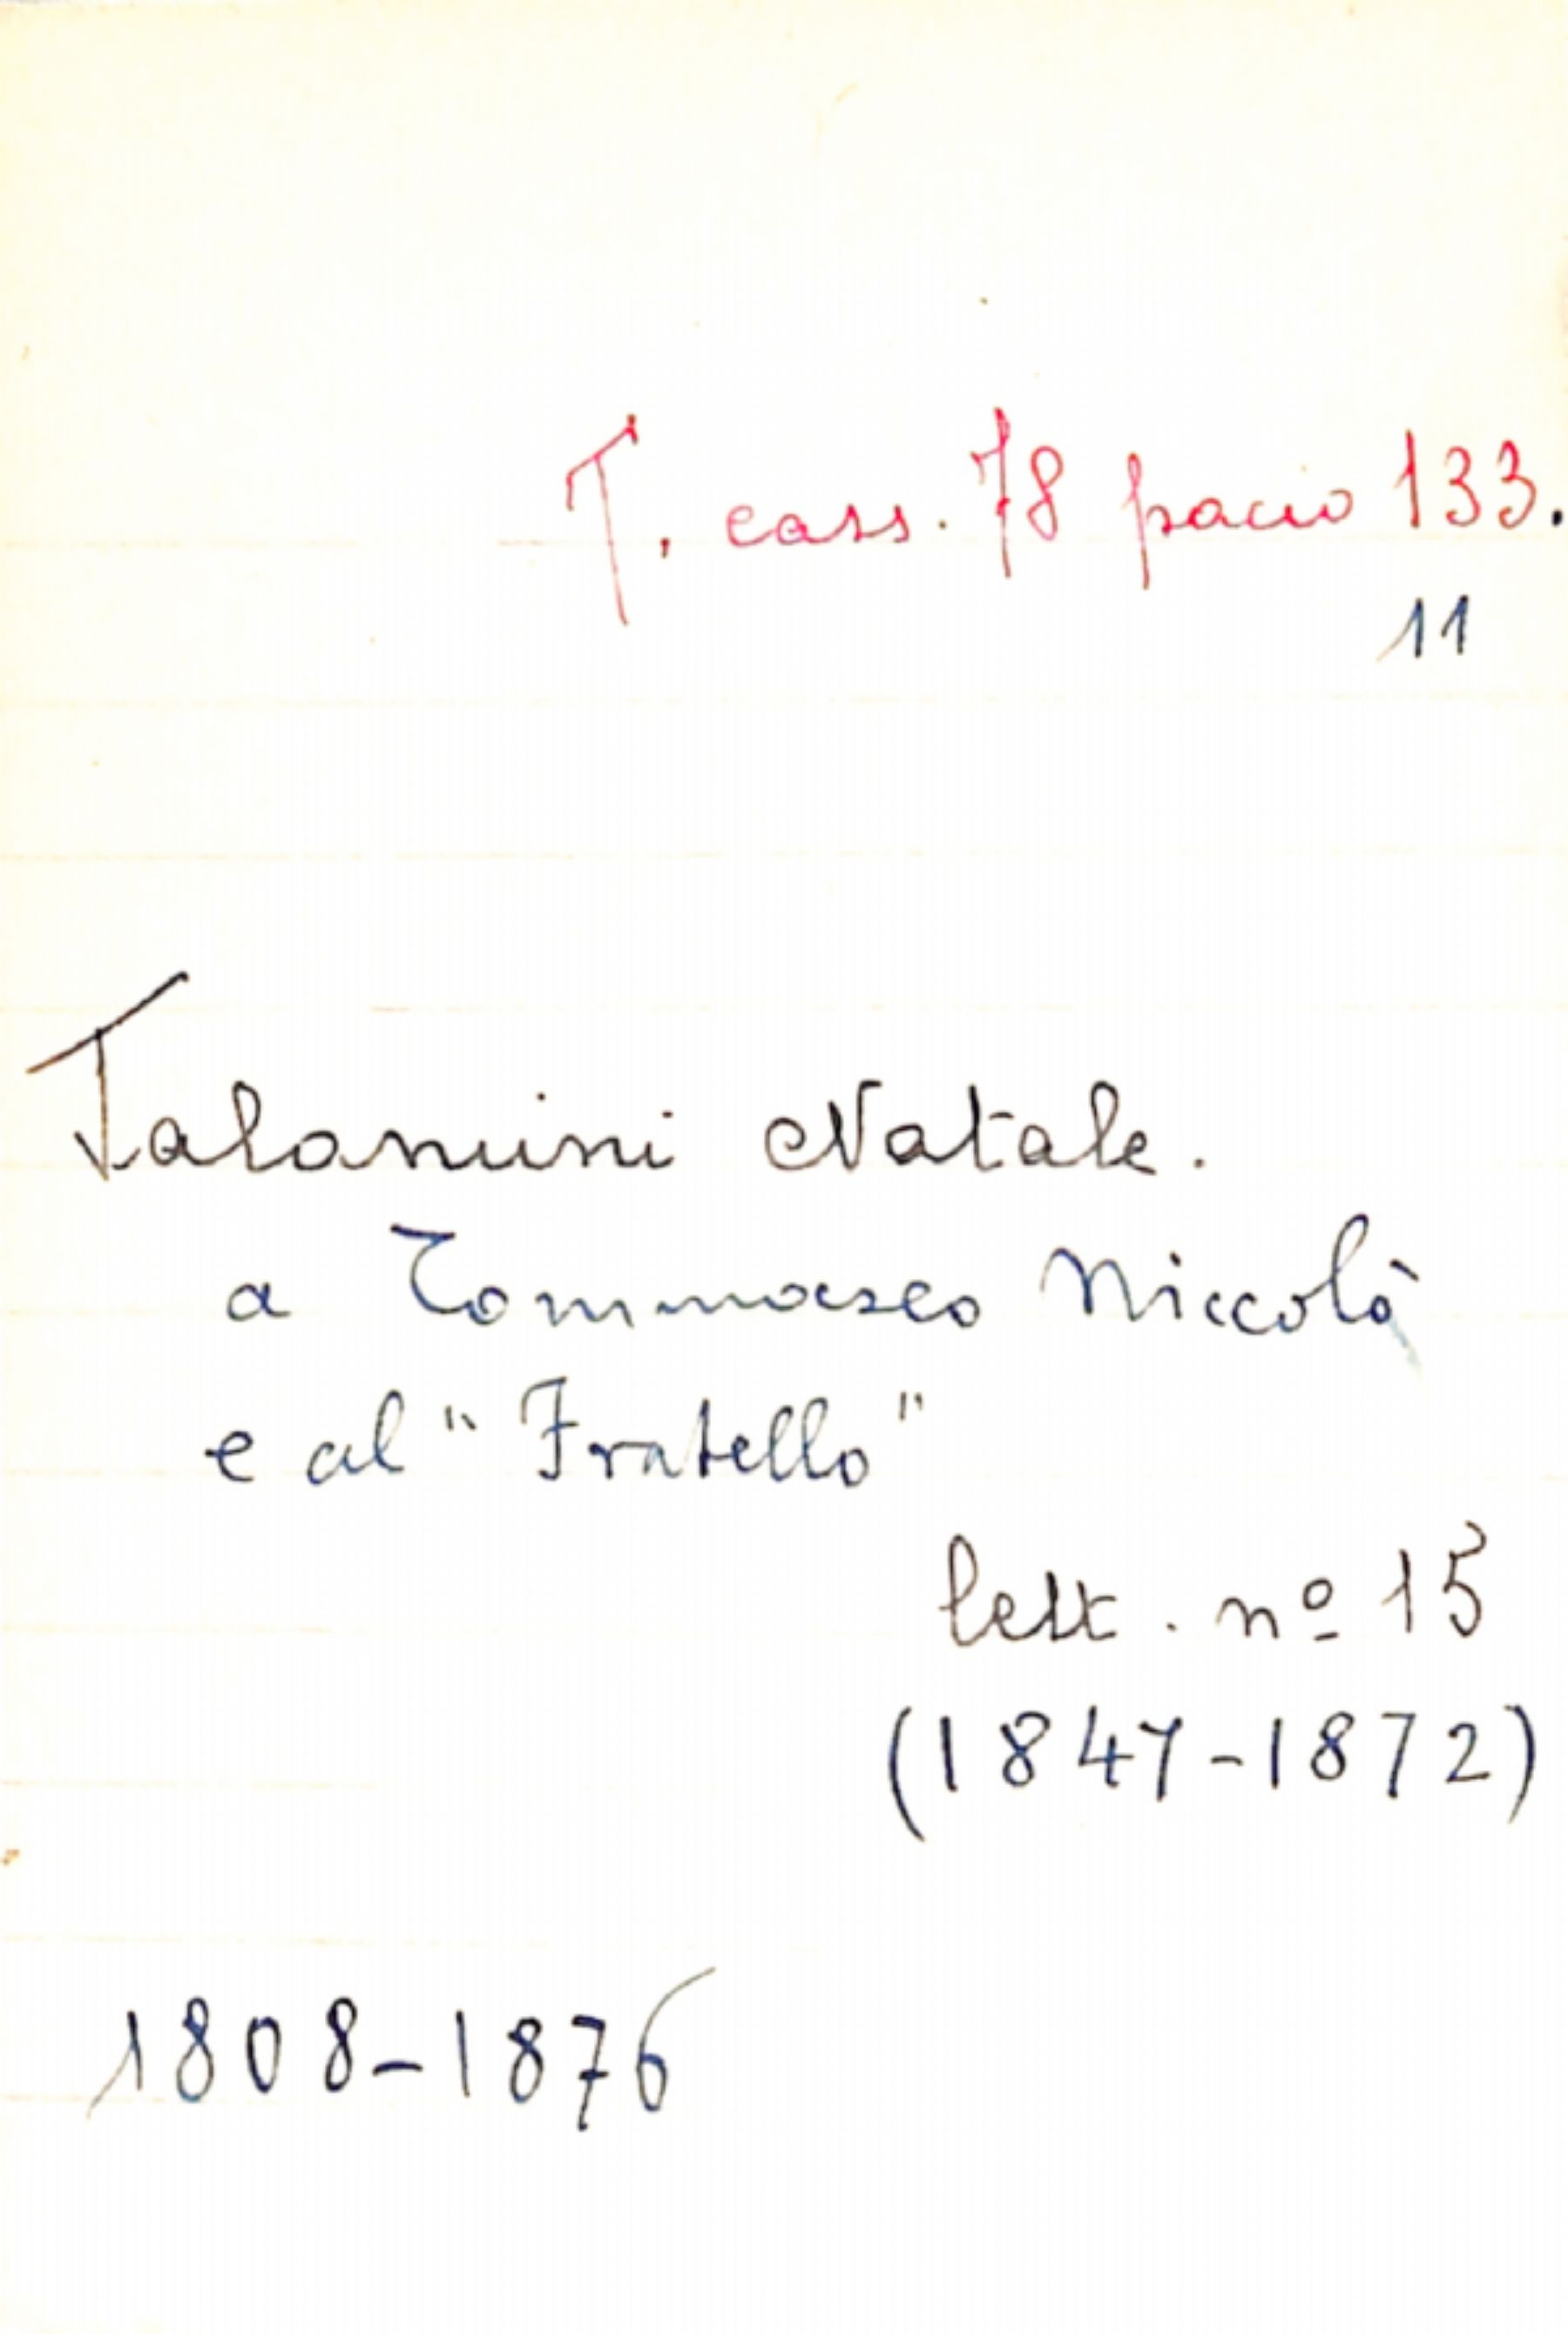 T. cass. 78 pacco 133.
11
Talamini Natale.
a Tommaseo Niccolò
e al "Fratello"
lett. nº 15
(1847-1872)
1808-1876